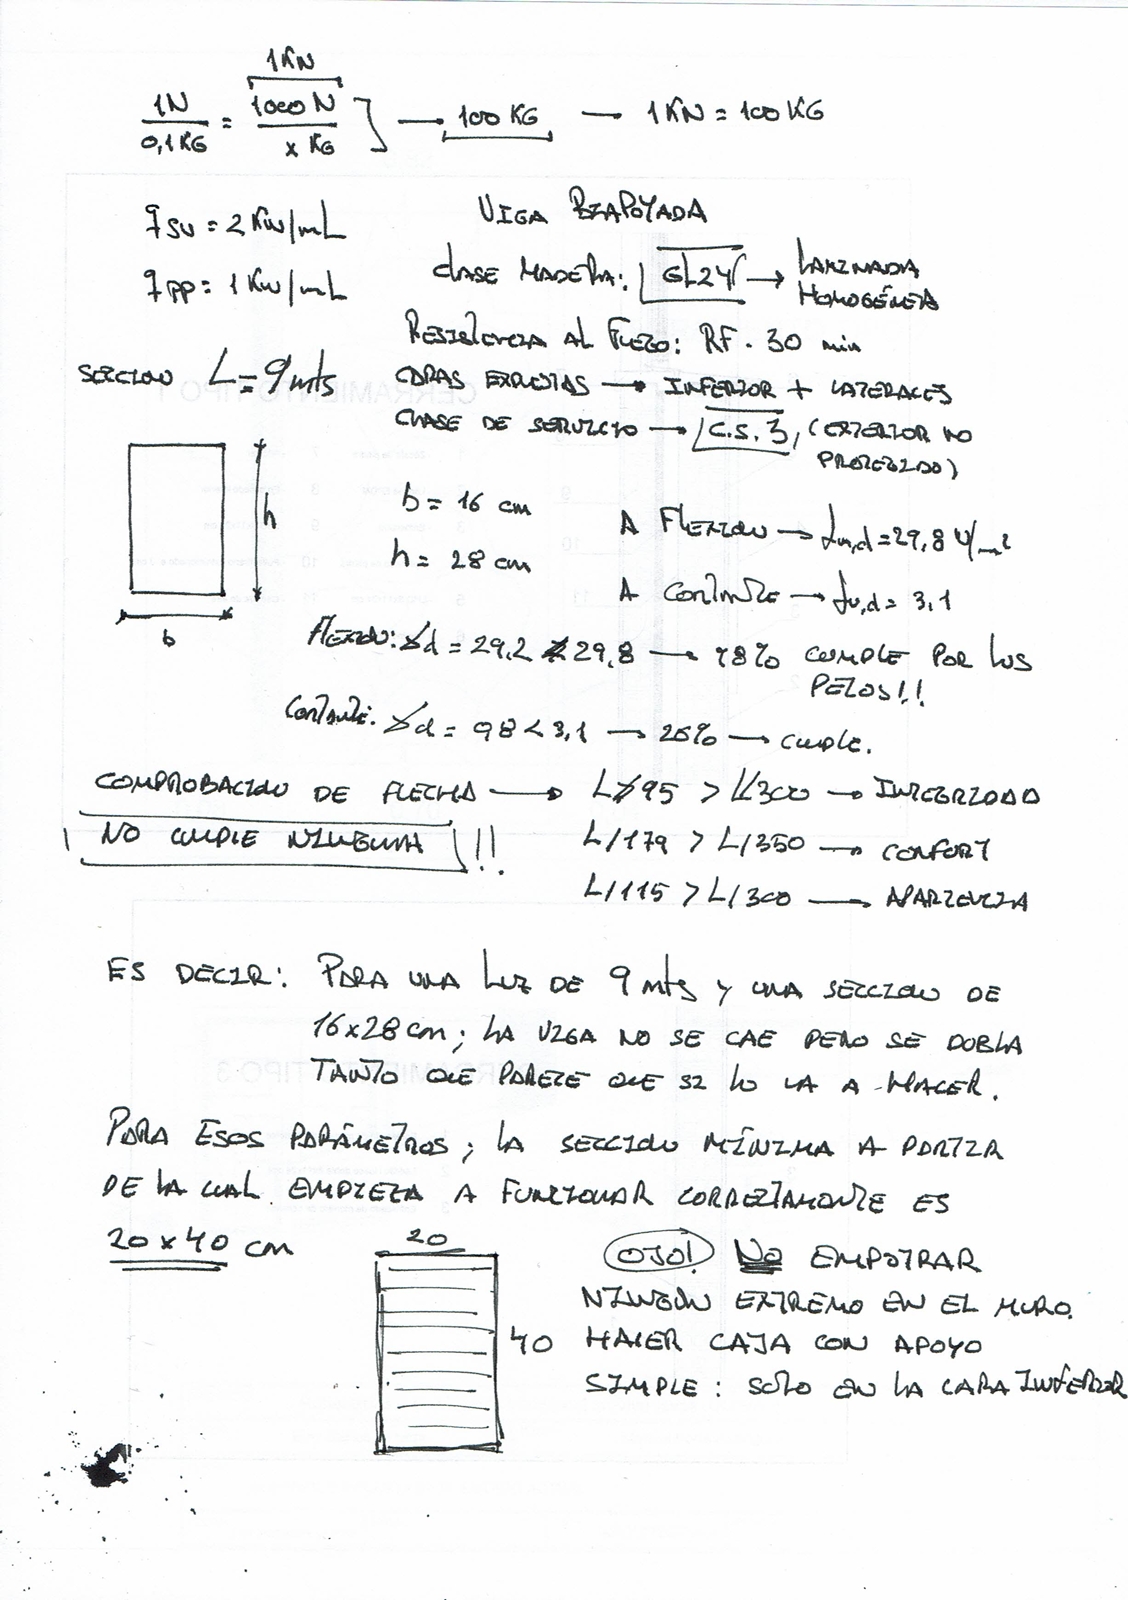 1KN
1N / 0,1KG = 1000 N / x KG ] → 100 KG — 1KN = 100 KG
qsu = 2 KN/mL
VIGA BIAPOYADA
qpp = 1 KN/mL
CLASE MADERA: GL24 → LAMINADA
HOMOGÉNEA
RESISTENCIA AL FUEGO: RF-30 min
SECCION L = 9 mts
CARAS EXPUESTAS → INFERIOR + LATERALES
CLASE DE SERVICIO → C.S.3, (EXTERIOR NO
PROTEGIDO)
h
b
b = 16 cm
h = 28 cm
A FLEXION → fm,d = 29,8 N/m²
A CORTANTE → fv,d = 3,1
FLEXION: d = 29,2 < 29,8 → 98% CUMPLE POR LOS
PELOS!!
CORTANTE: d = 0,8 < 3,1 → 26% → CUMPLE.
COMPROBACION DE FLECHA → L/95 > L/300 → INTEGRIDAD
NO CUMPLE NINGUNA!!
L/179 > L/350 → CONFORT
L/115 > L/300 → APARIENCIA
ES DECIR: PARA UNA LUZ DE 9 mts y UNA SECCION DE
16x28 cm; LA VIGA NO SE CAE PERO SE DOBLA
TANTO QUE PARECE QUE SI LO VA A HACER.
PARA ESOS PARÁMETROS; LA SECCION MÍNIMA A PARTIR
DE LA CUAL EMPIEZA A FUNCIONAR CORRECTAMENTE ES
20 x 40 cm
20
40
OJO! NO EMPOTRAR
NINGÚN EXTREMO EN EL MURO.
HACER CAJA CON APOYO
SIMPLE: SOLO EN LA CARA INFERIOR